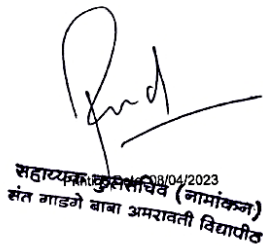 सहाय्यक कुलसचिव (नामांकन)
Printing Date 08/04/2023
संत गाडगे बाबा अमरावती विद्यापीठ